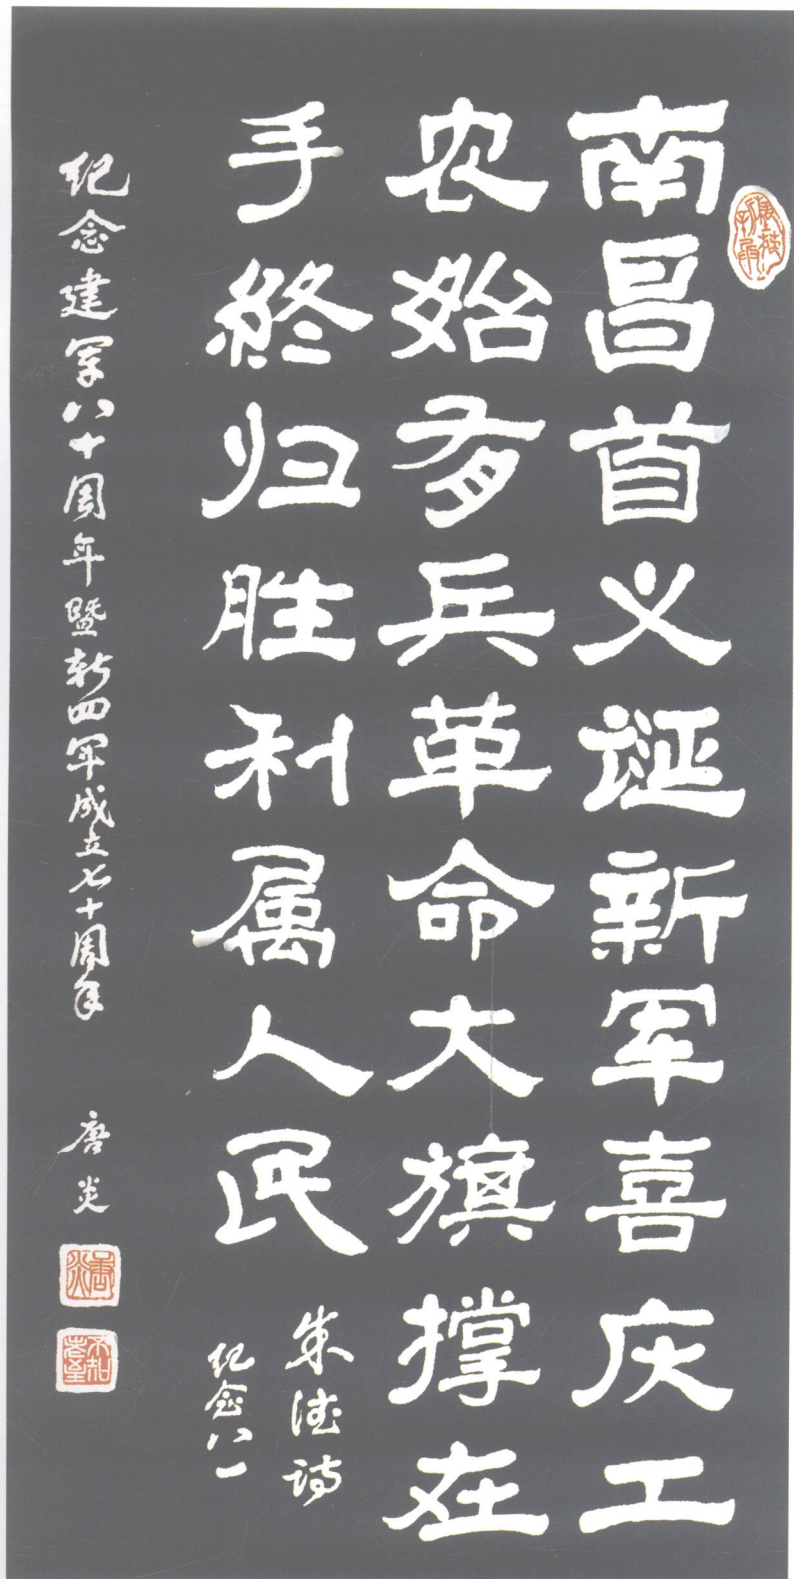 南昌首义诞新军喜庆工
农始有兵革命大旗撑在
手终归胜利属人民
朱德诗
纪念八一
纪念建军八十周年暨新四军成立七十周年
唐炎
唐炎
不知老至